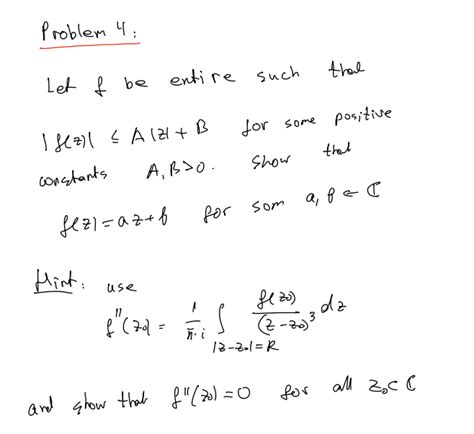 Problem 4:
Let f be entire such that
|f(z)| ≤ A|z| + B for some positive
constants A, B > 0. Show that
f(z) = az + b for som a, b ∈ ℂ
Hint: use
f''(z₀) = 1/(π·i) ∫_{|z-z₀|=R} f(z₀)/(z-z₀)³ dz
and show that f''(z₀) = 0 for all z₀ ∈ ℂ